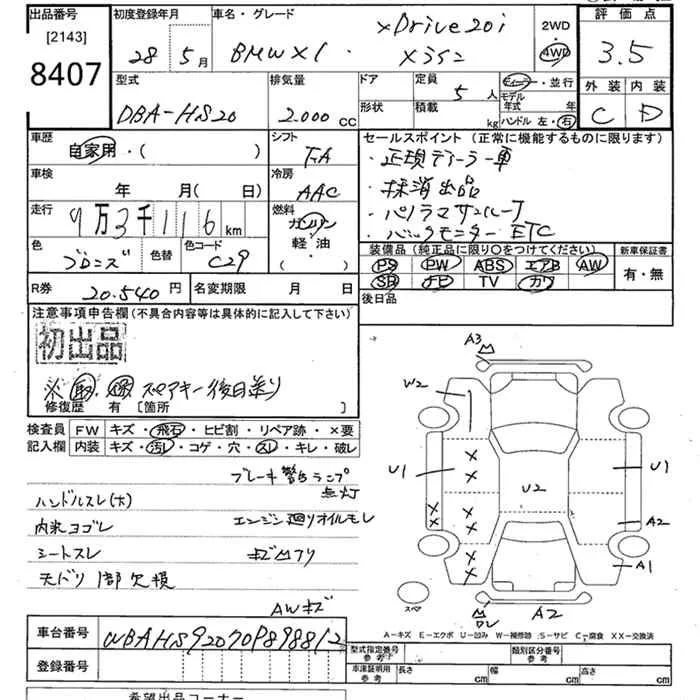 出品番号 初度登録年月 車名・グレード 評価点
[2143] 28 5月 BMW X1 xDrive20i Xライン 2WD 4WD 3.5
8407
外装 内装
C D
型式 排気量 ドア 定員 5人 ディーラー・並行
DBA-HS20 2.000 CC 形状 積載 kg モデル年式 年
ハンドル 左・右
車歴 自家用・( ) シフト FA
車検 年 月( 日) 冷房 AAC
走行 9万3千116 km 燃料 ガソリン 軽・油 ( )
色 ブロンズ 色替 色コード C29
R券 20.540円 名変期限 月 日
セールスポイント(正常に機能するものに限ります)
・正規ディーラー車
・抹消出品
・パノラマサンルーフ
・バックモニター ETC
装備品(純正品に限り○をつけてください) 新車保証書
PS PW ABS エアB AW 有・無
SR ナビ TV カワ
後日品
注意事項申告欄(不具合内容等は具体的に記入して下さい)
初出品
※ 取 スペアキー後日送り
修復歴 有 [箇所 ]
検査員 FW キズ・飛石・ヒビ割・リペア跡・×要
記入欄 内装 キズ・汚レ・コゲ・穴・スレ・キレ・破レ
ブレーキ警告ランプ
点灯
ハンドルスレ(大)
エンジン廻りオイルモレ
内装ヨゴレ
シートスレ
天バリ1部欠損
AWキズ
A3
W2
U1 U1
U2
A2
A1
スペア
A2
A-キズ E-エクボ U-凹み W-補修跡 S-サビ C-腐食 XX-交換済
車台番号 WBAHS92070P898812
型式指定番号 参考 類別区分番号 参考
登録番号
車庫証明用 参考 長さ cm 幅 cm 高さ cm
希望出品コーナー